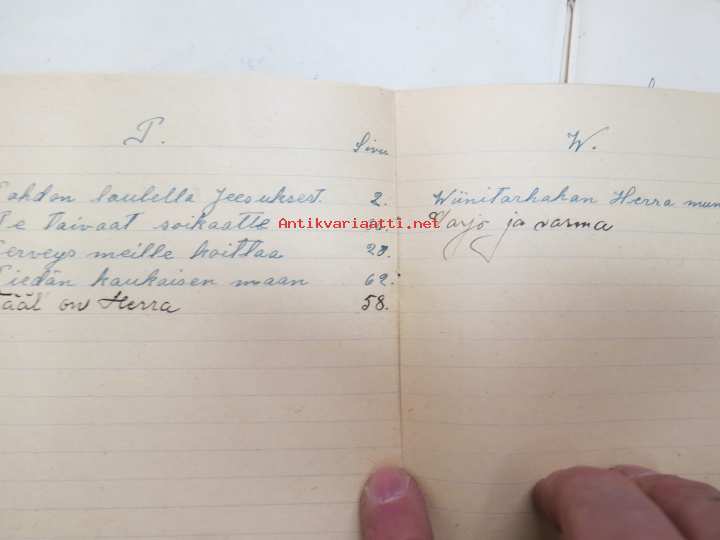 T.
Sivu
Tahdon laulella Jeesuksest. 2.
Te taivaat soikaatte
Terveys meille koittaa 28.
Tiedän kaukaisen maan 62.
Tääl on Herra 58.
W.
Wiinitarhakan Herra mun
Varjo ja varma
Antikvariaatti.net